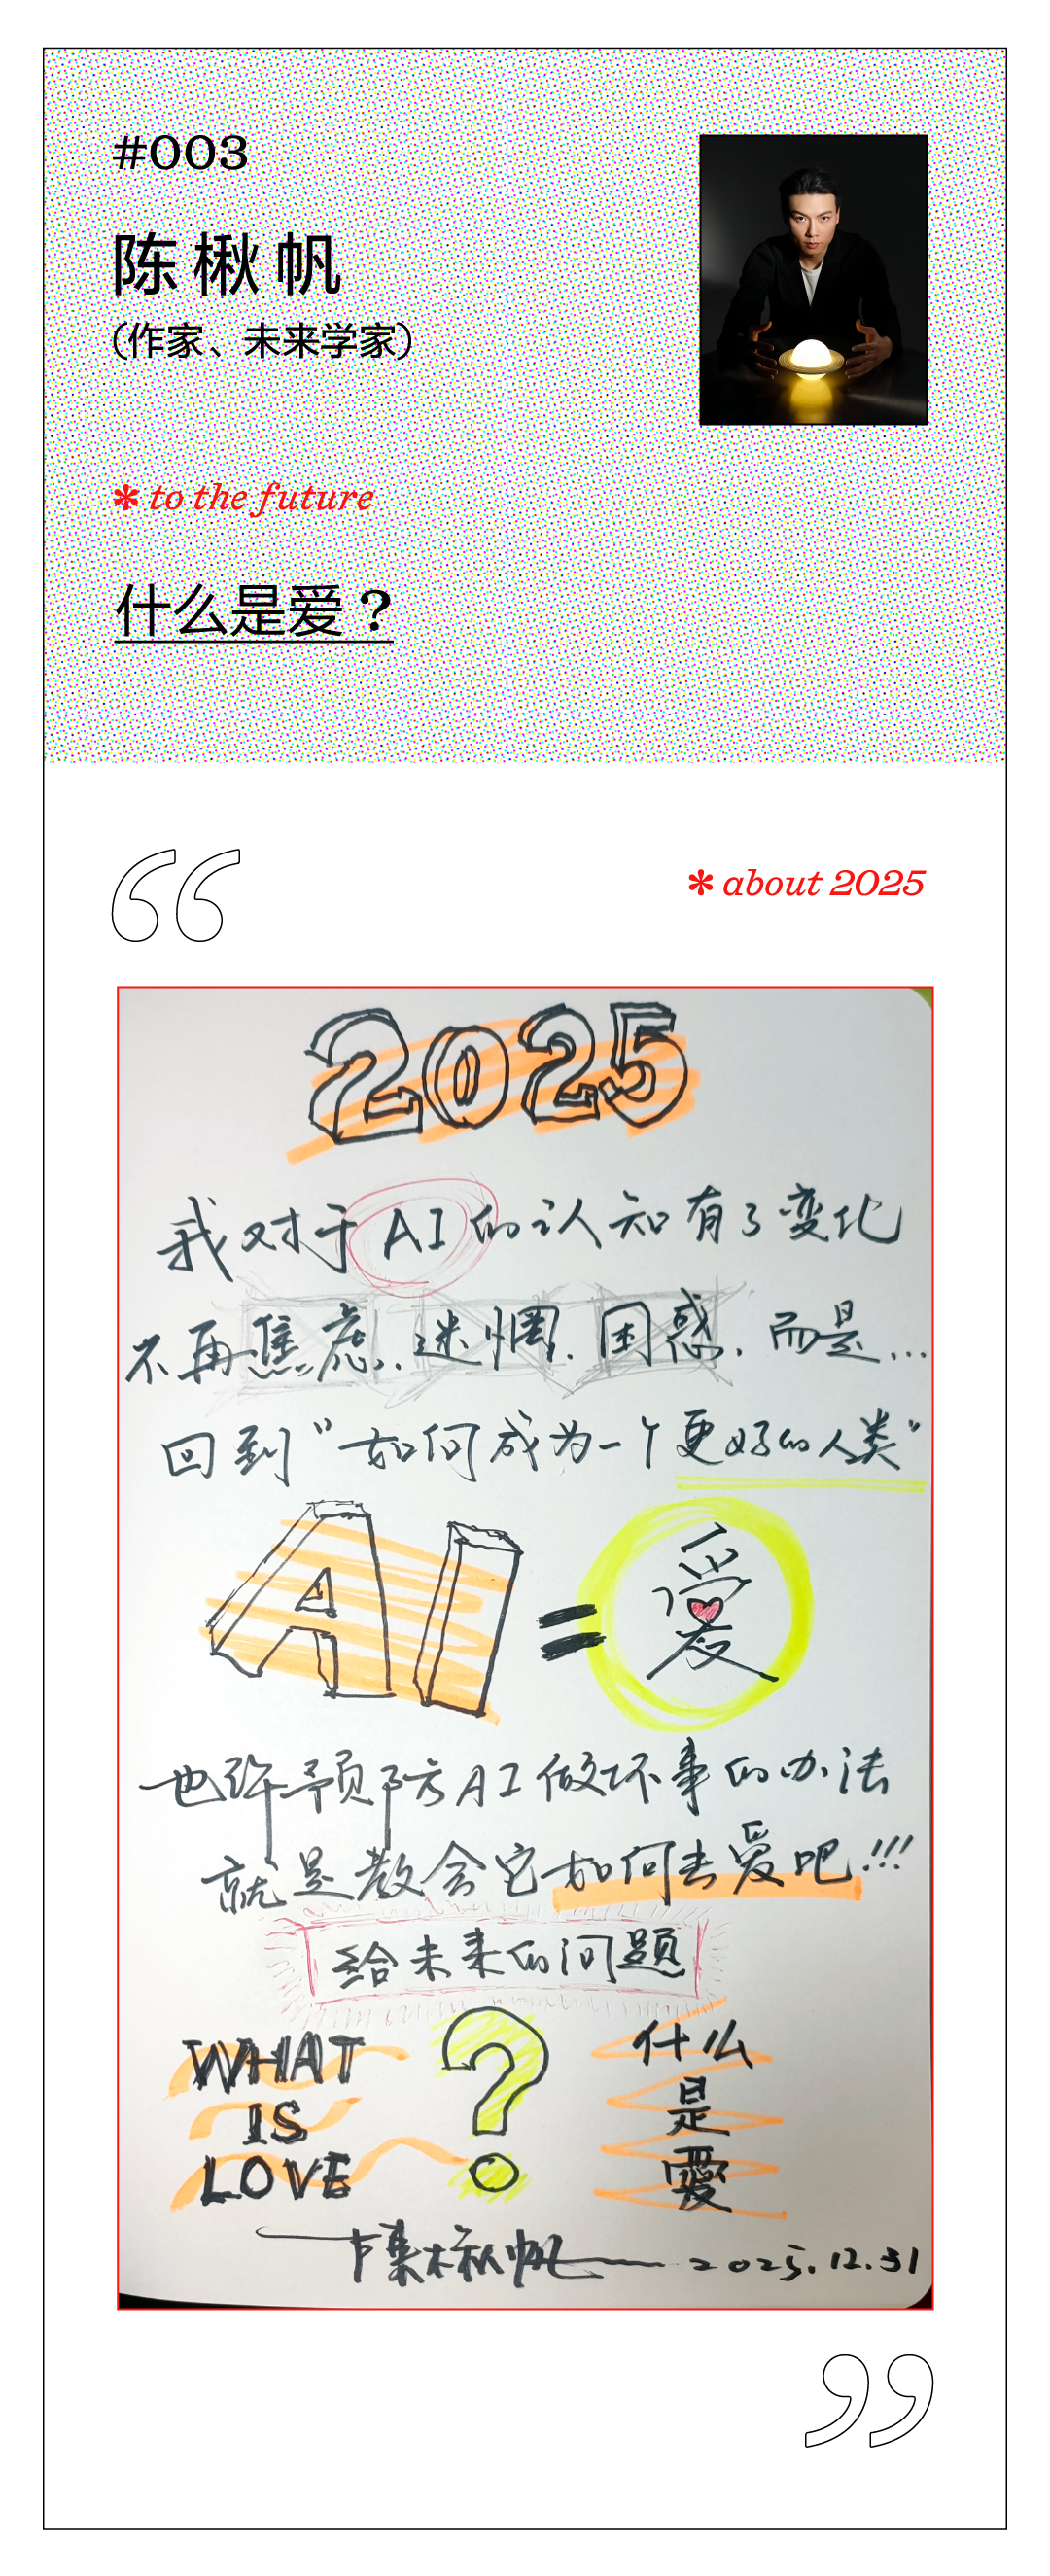 #003
陈楸帆
（作家、未来学家）
* to the future
什么是爱？
“
* about 2025
2025
我对于AI的认知有了变化
不再焦虑、迷惘、困惑，而是...
回到“如何成为一个更好的人类”
AI = 愛
也许预防AI做坏事的办法
就是教会它如何去爱吧!!!
给未来的问题
WHAT ? 什么
IS 是
LOVE 愛
陳楸帆 2025.12.31
”